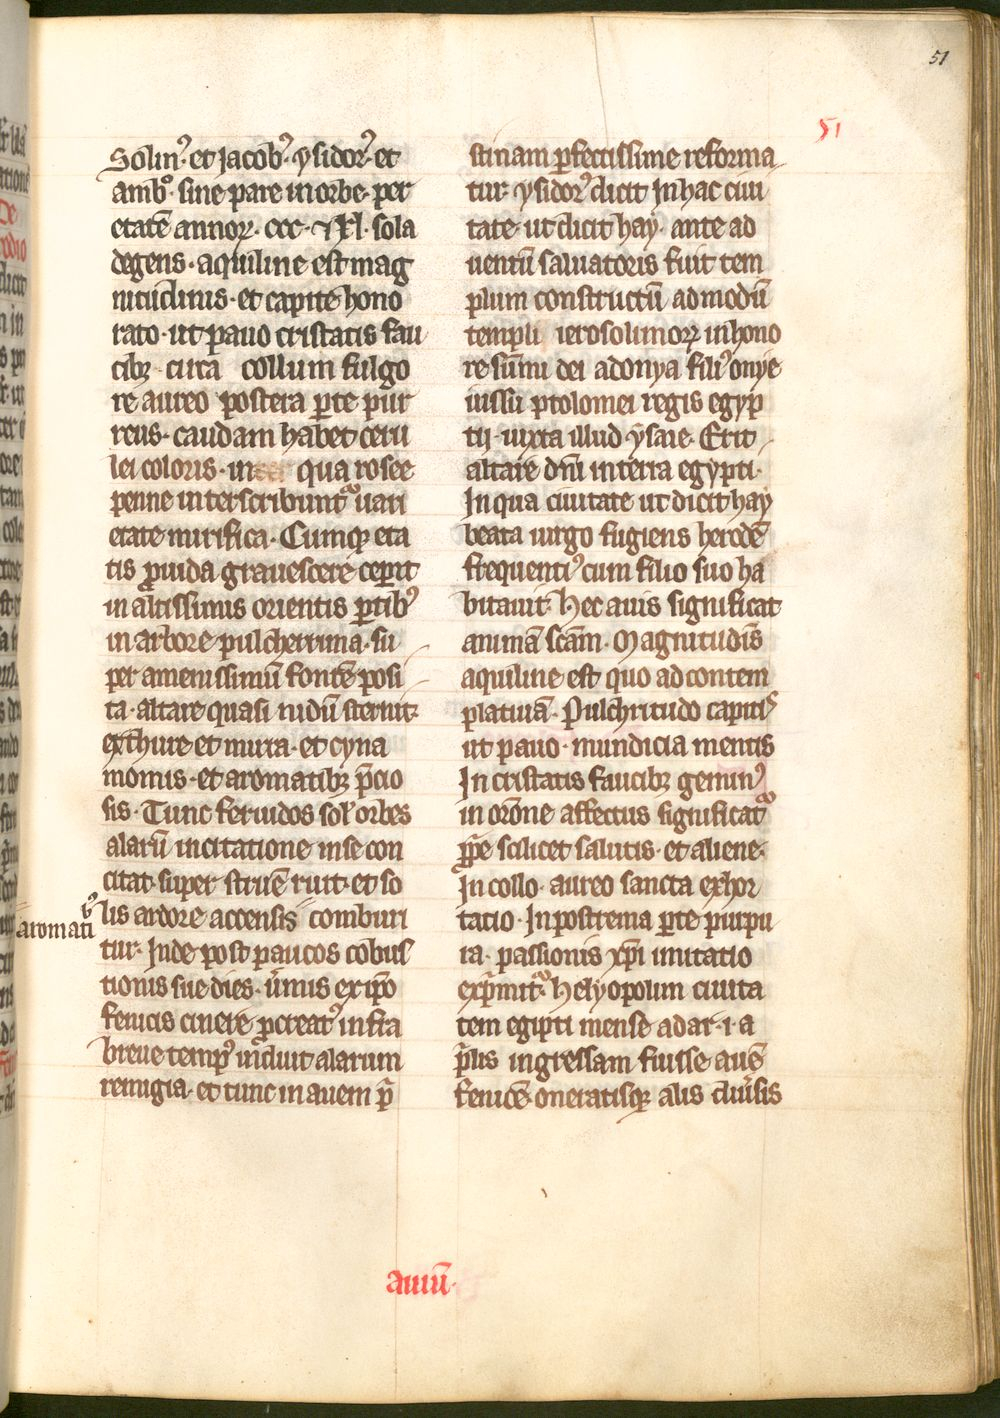 51
51
Solin᷒. et Jacob᷒. ysidor᷒. et
amb᷒. sine pare in orbe. per
etatē annoꝝ. ccc. ⁊ xl. sola
degens. aquiline est mag
nitudinis. et capite hono
rato. ut pauo cristatis fau
cibꝫ circa collum fulgo
re aureo postera ꝑte pur
reus. caudam habet ceru
lei coloris. in qua rosee
penne interscribunt᷑ uari
etate mirifica. Cumqꝫ eta
tis ꝓuida grauescere ceperit
in altissimis orientis ꝑtib᷒
in arbore pulcherrima. su
per amenissimū fontē posi
ta. altare quasi nidū sternit.
ex thure et mirra. et cyna
momis. et aromatibꝫ p̄cio
sis. Tunc feruidos sol' orbes
alarū incitatione in se con
citat. super struē ruit. et so
lis ardore accensis comburi
aromatib᷒
tur. Inde post paucos cōbus
tionis sue dies. u̓mis ex ip̄o
fenicis cinere ꝓcreat᷒ infra
breue temp᷒ induit alarum
remigia. et tunc in auem p̄
stinam ꝑfectissime reforma
tur. ysidor᷒ dicit In hac ciui
tate. ut dicit hay. ante ad
uentū saluatoris fuit tem
plum constructū ad modū
templi ierosolimoꝝ in hono
re sūmi dei adonya fili᷒ onye
iussu ptolomei regis egyp
tii. iuxta illud ysaie. Erit
altare dn̄i in terra egypti.
In qua ciuitate ut dicit hay
beata uirgo fugiens herodē
frequenti᷒ cum filio suo ha
bitauit. Hec auis significat
animā sc̄am. Magnitudīs
aquiline est quo ad contem
platiuā. Pulchritudo capitis
ut pauo. mundicia mentis
In cristatis faucibꝫ gemin᷒
in or̄one affectus significat᷑
ꝓp̄e scilicet salutis. et aliene.
In collo. aureo sancta exhor
tacio. In postrema ꝑte purpu
ra. passionis xp̄i imitatio
exp̄mit᷑. Helyopolim ciuita
tem egipti mense adar. i. a
p̄lis ingressam fuisse auē
fenicē. oneratisqꝫ alis diu̓sis
auiū.